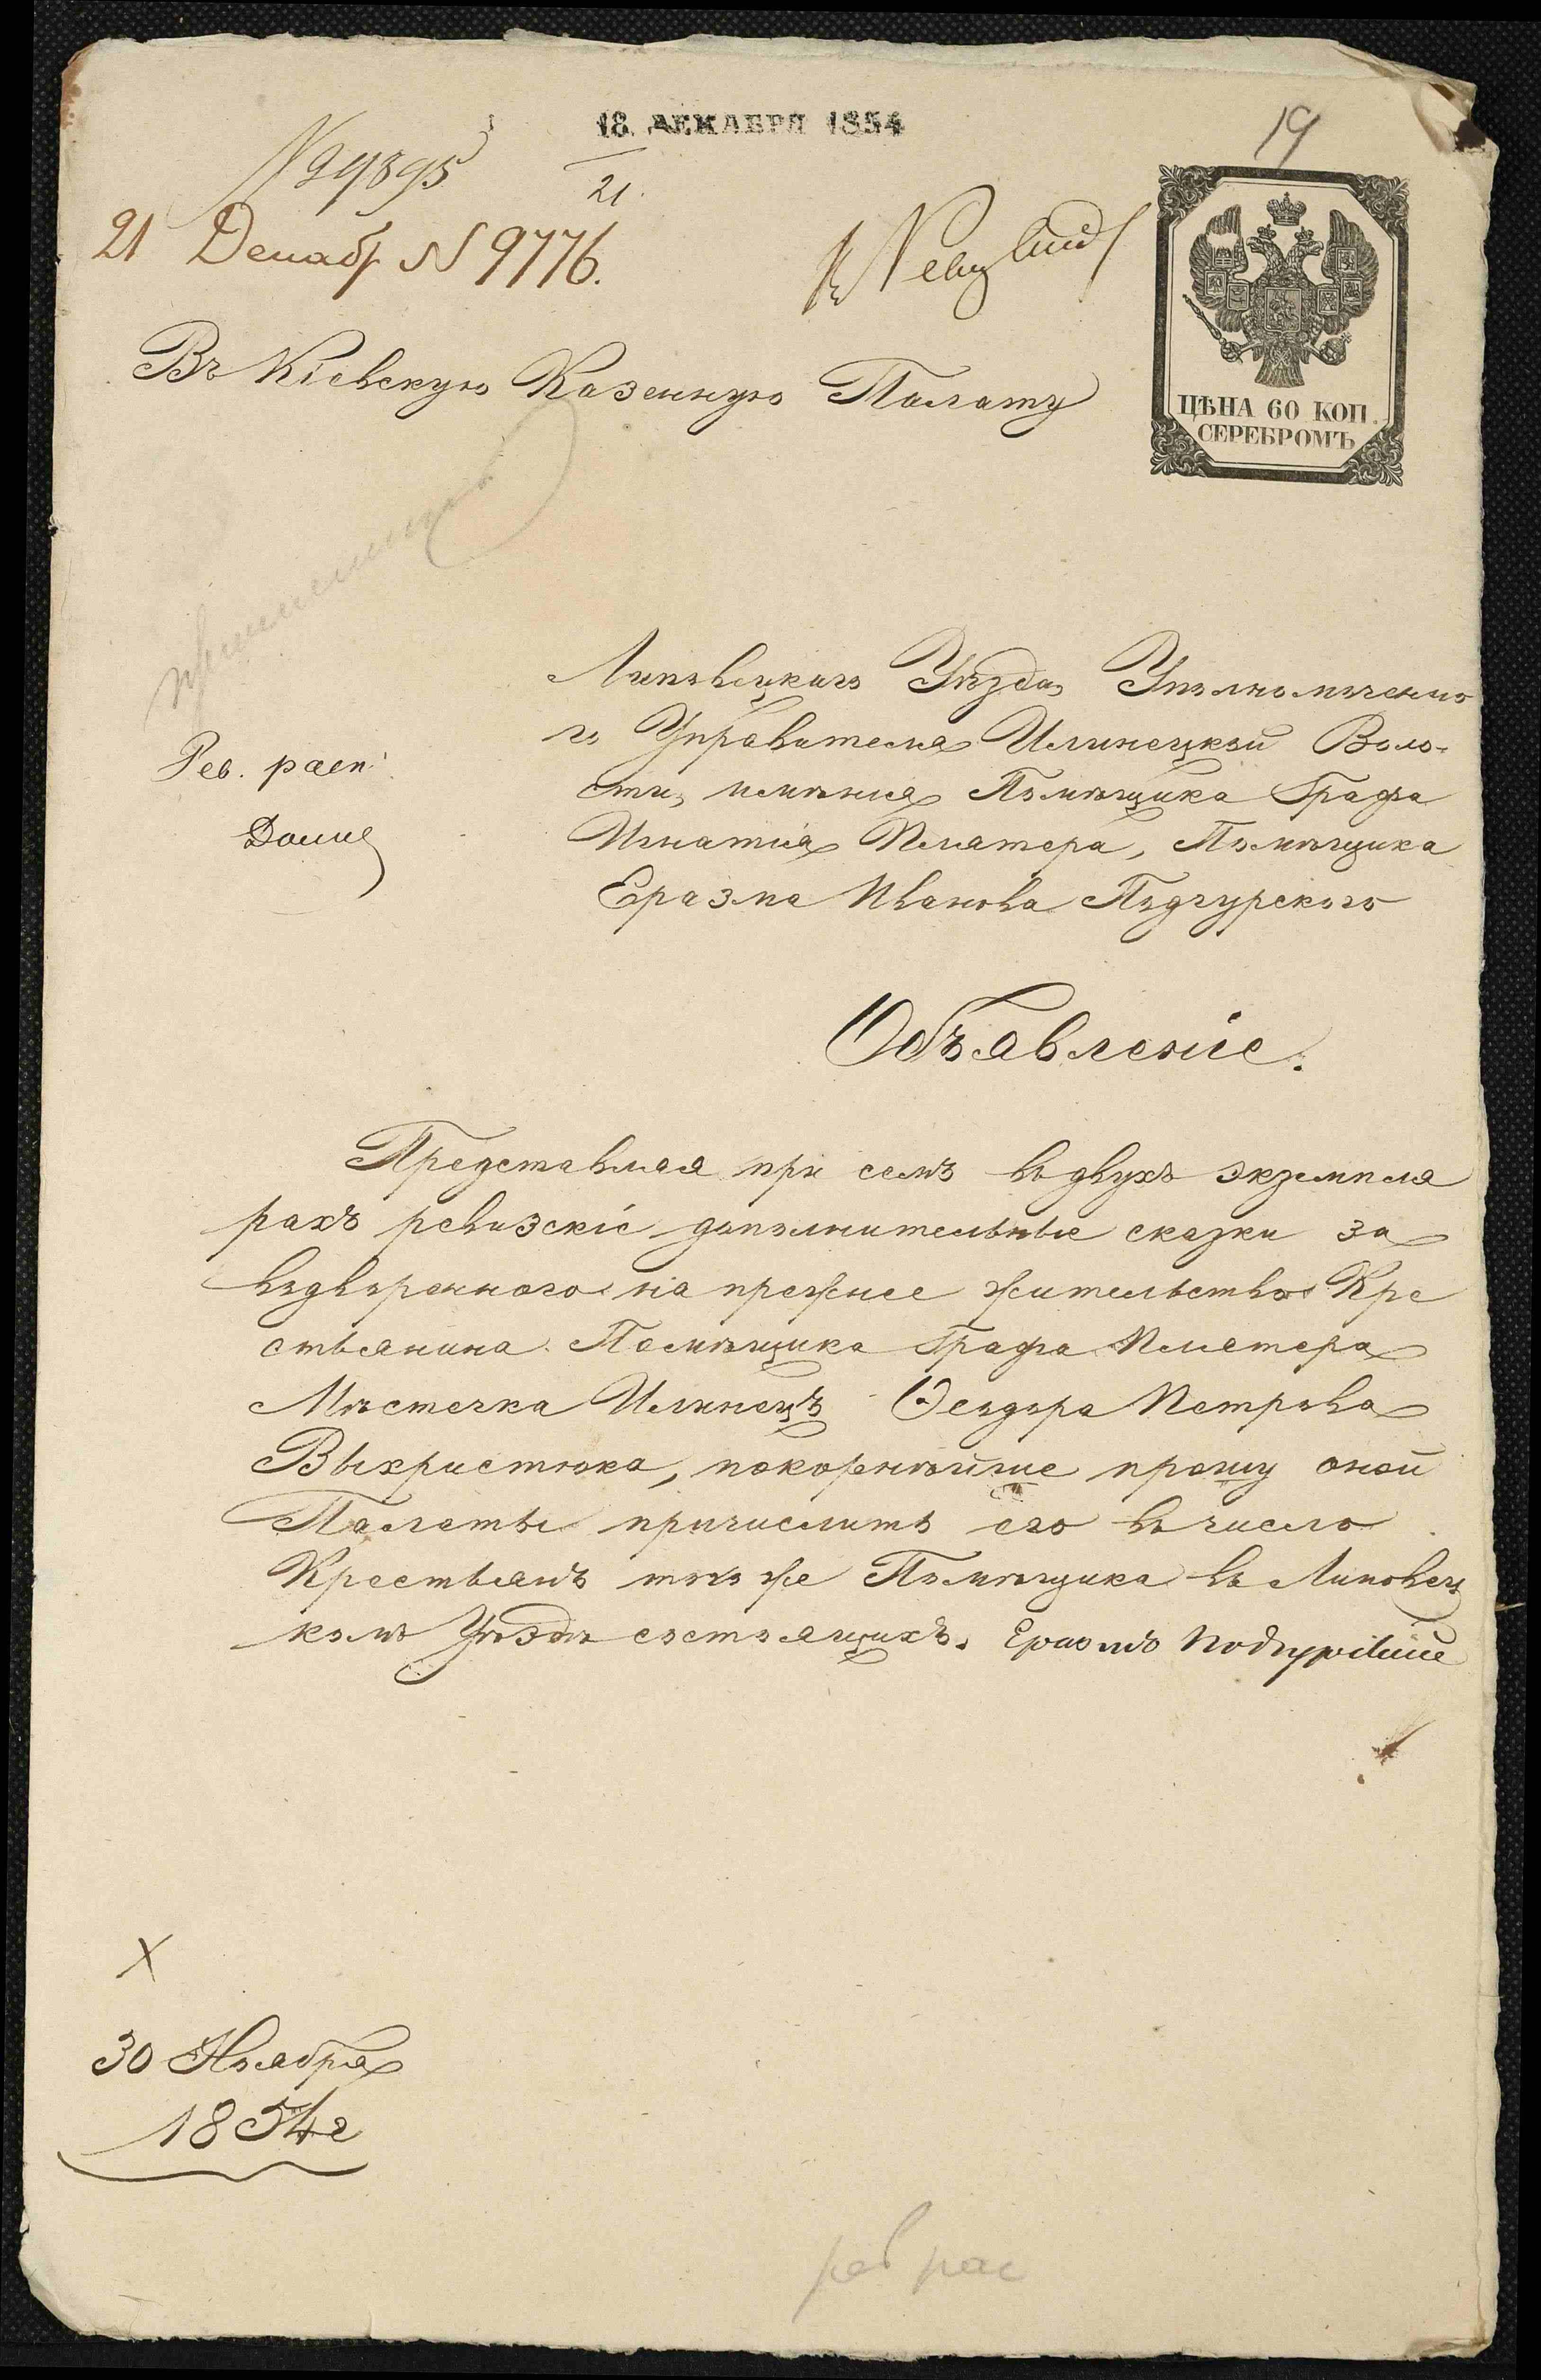 18 ДЕКАБРЯ 1854
19
№ 29895
21
21 Декабр № 9776.
Въ Кіевскую Казенную Палату
ЦѢНА 60 КОП.
СЕРЕБРОМЪ
Липовецкаго Уѣзда, Уполномоченно
го Управителя Илинецкой Воло-
сти, имѣнія Помѣщика Графа
Игнатія Плятера, Помѣщика
Еразма Иванова Подгурского
Рев. расп.
Объявленіе.
Представляя при семъ въ двухъ экземпля
рахъ ревизскіе дополнительные сказки за
водвореннаго на прежнее жительство Кре
стьянина Помѣщика Графа Плятера
Мѣстечка Илинецъ Ѳеодора Петрова
Выхристюка, покорнѣйше прошу оной
Палаты причислить его въ число
Крестьянъ того же Помѣщика въ Липовец
комъ Уѣздѣ состоящихъ. Еразмъ Подгурскій
30 Ноября
1854 г
рев рас